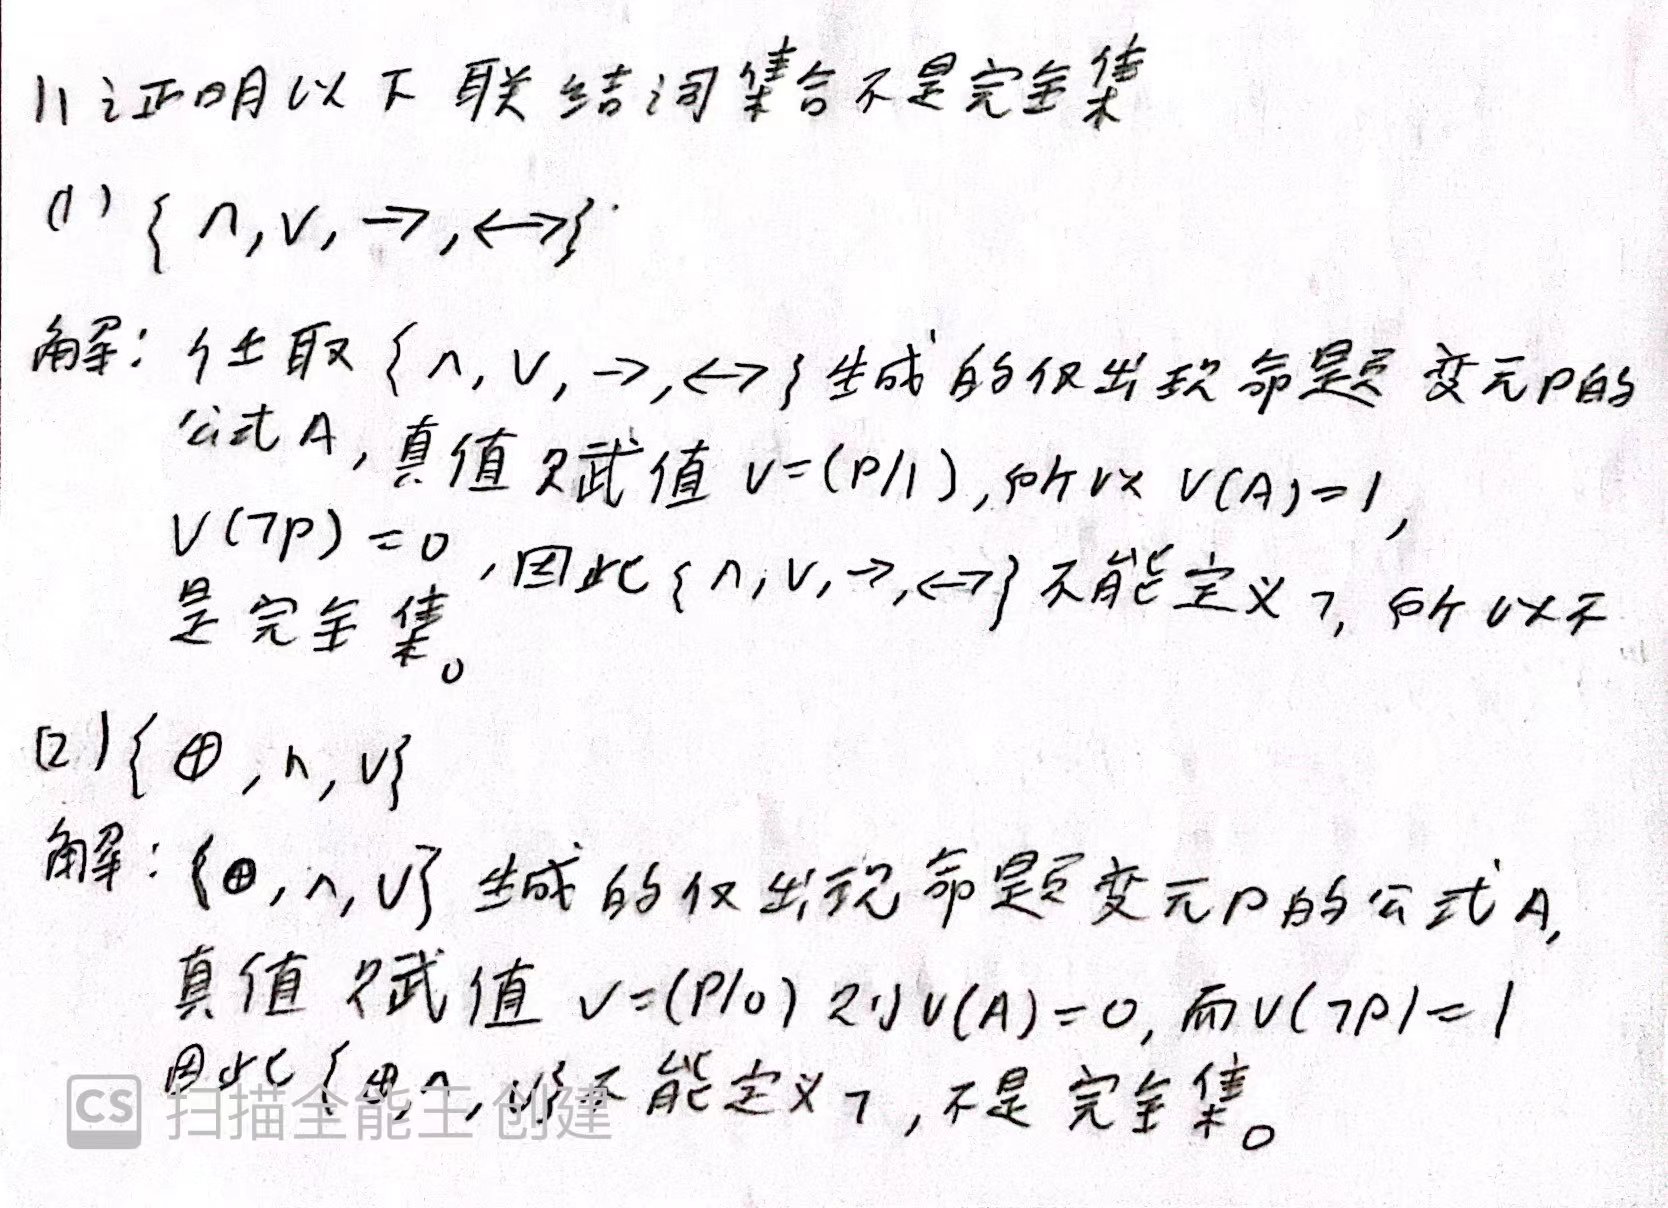 11 证明以下联结词集合不是完全集
(1) {∧,∨,→,↔}
解: 任取{∧,∨,→,↔}生成的仅出现命题变元P的
公式A,真值赋值 v=(P/1),所以 v(A)=1,
v(¬P)=0,因此{∧,∨,→,↔}不能定义¬,所以不
是完全集。
(2) {⊕,∧,∨}
解: {⊕,∧,∨}生成的仅出现命题变元P的公式A,
真值赋值 v=(P/0) 则v(A)=0,而v(¬P)=1
因此{⊕,∧,∨}不能定义¬,不是完全集。
CS 扫描全能王 创建